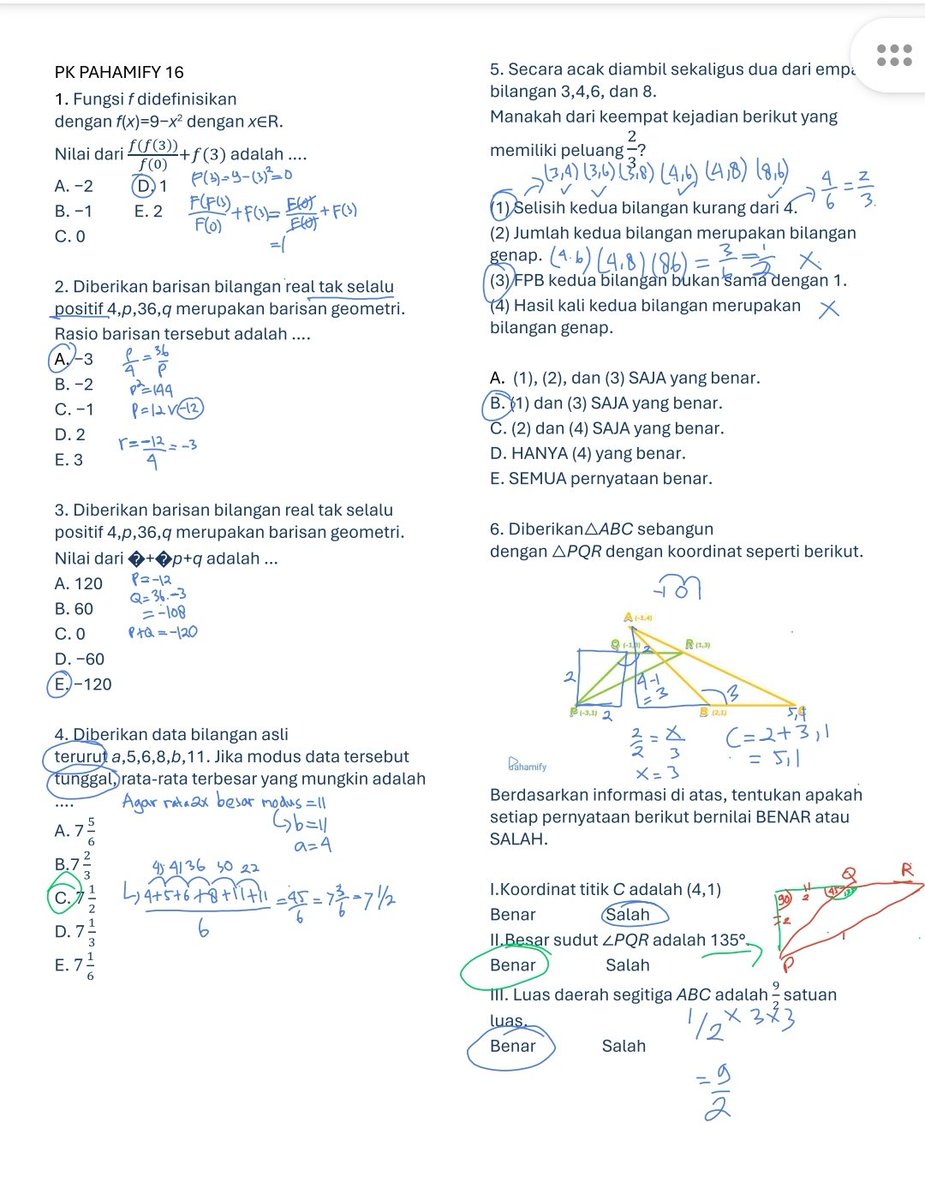 PK PAHAMIFY 16
1. Fungsi f didefinisikan
dengan f(x)=9−x² dengan x∈R.
Nilai dari f(f(3))/f(0) + f(3) adalah ....
A. −2
D. 1
B. −1
E. 2
C. 0
F(3)=9-(3)²=0
F(F(3))/F(0) + F(3) = F(0)/F(0) + F(3)
=1
2. Diberikan barisan bilangan real tak selalu
positif 4,p,36,q merupakan barisan geometri.
Rasio barisan tersebut adalah ....
A. −3
B. −2
C. −1
D. 2
E. 3
P/4 = 36/P
P²=144
P=12 V -12
r = -12/4 = -3
3. Diberikan barisan bilangan real tak selalu
positif 4,p,36,q merupakan barisan geometri.
Nilai dari �+�p+q adalah ...
A. 120
B. 60
C. 0
D. −60
E. −120
P=-12
Q=36.-3
=-108
P+Q=-120
4. Diberikan data bilangan asli
terurut a,5,6,8,b,11. Jika modus data tersebut
tunggal, rata-rata terbesar yang mungkin adalah
....
A. 7 5/6
B. 7 2/3
C. 7 1/2
D. 7 1/3
E. 7 1/6
Agar rata2x besar modus = 11
↳ b=11
a=4
45 41 36 30 22
↳ 4+5+6+8+11+11/6 = 45/6 = 7 3/6 = 7 1/2
5. Secara acak diambil sekaligus dua dari empa
bilangan 3,4,6, dan 8.
Manakah dari keempat kejadian berikut yang
memiliki peluang 2/3?
(3,4) (3,6) (3,8) (4,6) (4,8) (8,6)
4/6 = 2/3
(1) Selisih kedua bilangan kurang dari 4.
(2) Jumlah kedua bilangan merupakan bilangan
genap. (4.6) (4,8) (86) = 3/6 = 1/2 X
(3) FPB kedua bilangan bukan sama dengan 1.
(4) Hasil kali kedua bilangan merupakan X
bilangan genap.
A. (1), (2), dan (3) SAJA yang benar.
B. (1) dan (3) SAJA yang benar.
C. (2) dan (4) SAJA yang benar.
D. HANYA (4) yang benar.
E. SEMUA pernyataan benar.
6. Diberikan△ABC sebangun
dengan △PQR dengan koordinat seperti berikut.
A (-1,4)
Q (-1,3)
2
R (1,3)
2
4-1
= 3
3
P (-3,1)
2
B (2,1)
5,1
2/2 = x/3
x = 3
C = 2+3,1
= 5,1
Pahamify
Berdasarkan informasi di atas, tentukan apakah
setiap pernyataan berikut bernilai BENAR atau
SALAH.
I.Koordinat titik C adalah (4,1)
Benar
Salah
II.Besar sudut ∠PQR adalah 135°.
Benar
Salah
III. Luas daerah segitiga ABC adalah 9/2 satuan
luas.
Benar
Salah
1/2 x 3 x 3
= 9/2
Q
R
90
45
P